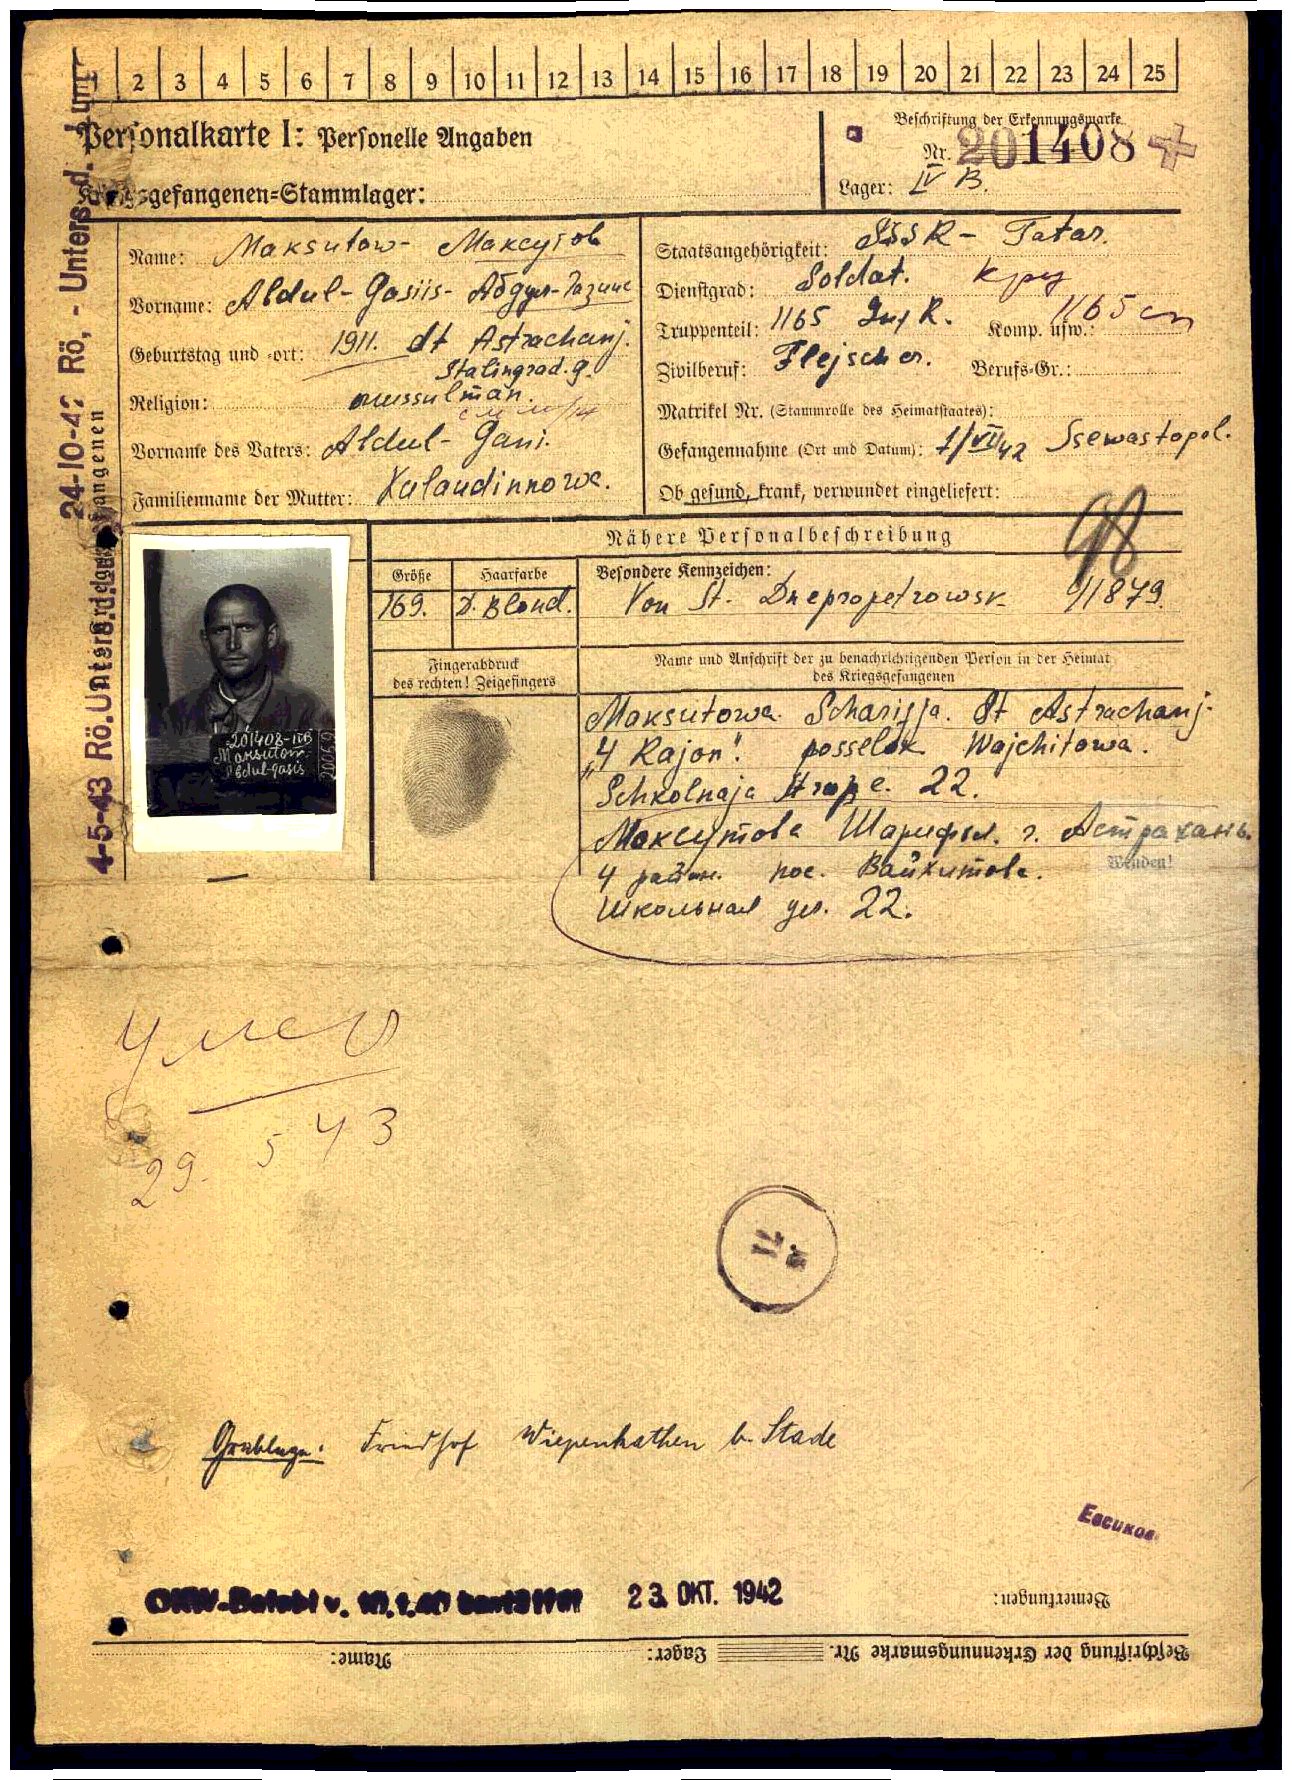 1 2 3 4 5 6 7 8 9 10 11 12 13 14 15 16 17 18 19 20 21 22 23 24 25
Personalkarte I: Personelle Angaben
Beschriftung der Erkennungsmarke
Nr. 201408
Kriegsgefangenen=Stammlager:
Lager: IV B.
Name: Maksutow- Максутов
Staatsangehörigkeit: SSSR - Tatar.
Vorname: Abdul-Gasiis- Абдул-Газиис
Dienstgrad: Soldat.
Truppenteil: 1165 Inf R. Komp. usw.: 1165 сп
Geburtstag und =ort: 1911. St Astrachanj.
Stalingrad. g.
Zivilberuf: Flejscher. Berufs=Gr.:
Religion: mussulman.
Matrikel Nr. (Stammrolle des Heimatstaates):
Vorname des Vaters: Abdul- Gani.
Gefangennahme (Ort und Datum): 1/VII 42 Ssewastopol.
Familienname der Mutter: Kalaudinnowa.
Ob gesund, krank, verwundet eingeliefert:
98
Nähere Personalbeschreibung
Größe Haarfarbe Besondere Kennzeichen:
169. D. Blond. Von St. Dnepropetrowsk 41879.
Fingerabdruck
des rechten! Zeigefingers
Name und Anschrift der zu benachrichtigenden Person in der Heimat
des Kriegsgefangenen
Maksutowa Scharifja. St Astrachanj-
"4 Rajon". posselok Wajchitowa.
Schkolnaja Straße. 22.
Максутова Шарифья. г. Астрахань.
4 район. пос. Вайхитова.
Школьная ул. 22.
Wenden!
201408-IVB
Maksutow
Abdul-gasis
24-10-42 Rö. - Unters.
4-5-43 Rö. Unters.
умер
29. 5 43
Grablage: Friedhof Wiepenkathen b. Stade
Евсиков
OKW-Befehl v. 23. OKT. 1942
Bemerkungen:
Beschriftung der Erkennungsmarke Nr. Lager: Name: